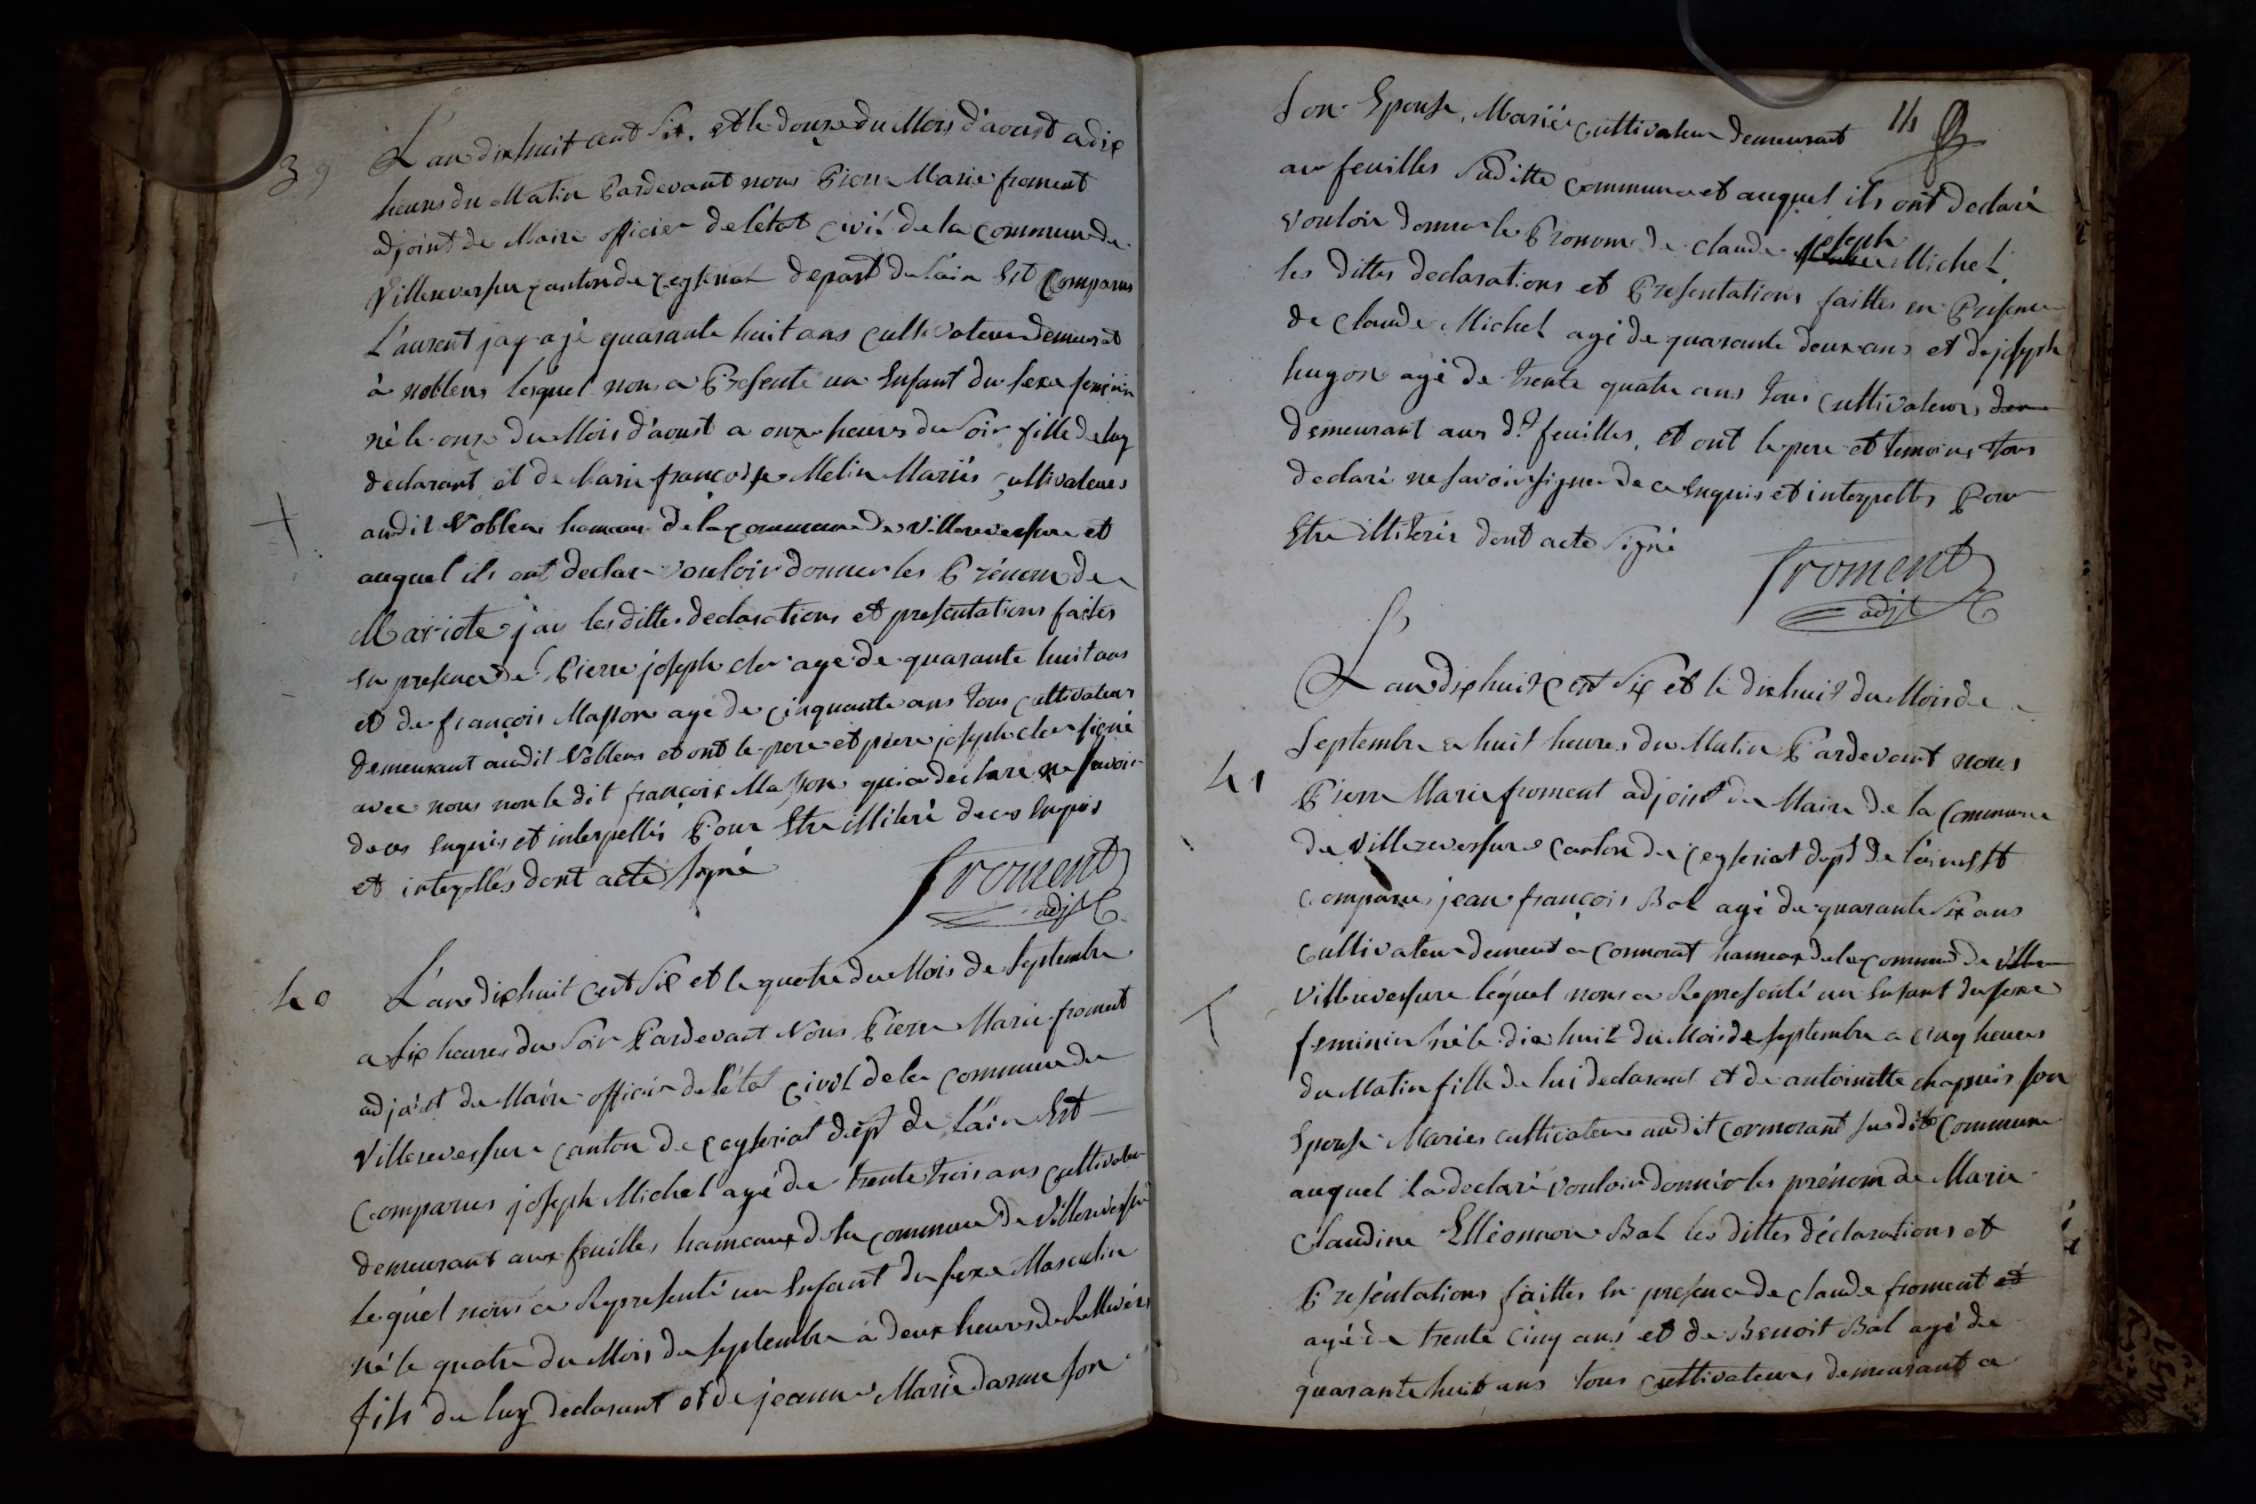 39
L'an dix huit cent Six. et le douze du Mois d'aoust a dix
heures du Matin Pardevant nous Pierre Marie froment
adjoint de Maire officier de l'etat civil de la commune de
Villereversure canton de Ceyseriat depart de l'ain Est Comparus
Laurent jay agé quarante huit ans cultivateur demeurant
à Noblens lesquel nous a Presenté un Enfant du sexe feminin
né le onze du Mois d'aoust a onze heures du Soir fille de luy
declarant et de Marie françoise Melin Mariés cultivateurs
audit Noblens hameau de la commune de Villereversure et
auquel ils ont declaré vouloir donner les Prénom de
Mariote jay les dittes declarations et presentations faites
En presence de Pierre joseph cler agé de quarante huit ans
et de françois Masson agé de cinquante ans tous cultivateurs
demeurant audit Noblens et ont le pere et piere joseph cler signé
avec nous non le dit françois Masson qui a declaré ne savoir
de ces Enquis et interpellés Pour Etre illiteré de ces Enquis
et interpellés dont acte signé
froment
adjt
40
L'an dix huit cent Six et le quatre du Mois de Septembre
a six heures du Soir Pardevant Nous Pierre Marie froment
adjoint du Maire officier de l'état civil de la commune de
Villereversure canton de Ceyseriat dept de l'ain Est
Comparus joseph Michel agé de trente trois ans cultivateur
demeurant aux feuilles hameaux de la commune de Villereversure
lequel nous a Representé un Enfant du sexe Masculin
né le quatre du Mois de Septembre à deux heures de
fils de luy declarant et de jeanne Marie darme son
Son Epouse, Mariés cultivateur demeurant
au feuilles Suditte commune et auquel ils ont declaré
vouloir donner le Prenom de claude joseph Michel
les dittes declarations et Presentations faittes en Presence
de claude Michel agé de quarante deux ans et de joseph
hugon agé de trente quatre ans tous cultivateurs dem
demeurant aux d.t feuilles, et ont le pere et temoins tous
declaré ne savoir signer de ce Enquis et interpellés Pour
Etre illiterés dont acte Signé
froment
adjt
41
L'an dix huit cent Six et le dix huit du Mois de
Septembre a huit heures du Matin Pardevant nous
Pierre Marie froment adjoint du Maire de la Commune
de Villereversure canton de Ceyseriat dept de l'ain Est
Comparus jean françois Bal agé de quarante Six ans
cultivateur demeurt a Cormorat hameau de la commune de Viller
Villereversure léquel nous a Representé un Enfant du sexe
feminin né le dix huit du Mois de Septembre a cinq heures
du Matin fille de lui declarant et de antoinette chapuis son
Epouse Mariés cultivateurs audit Cormorant susdite Commune
auquel il a declaré vouloir donner les prénom de Marie
Claudine Elléonnor Bal les dittes déclarations et
Presentations faittes En presence de claude froment et
agé de trente cinq ans et de Benoit Bal agé de
quarante huit ans tous cultivateurs demeurant a